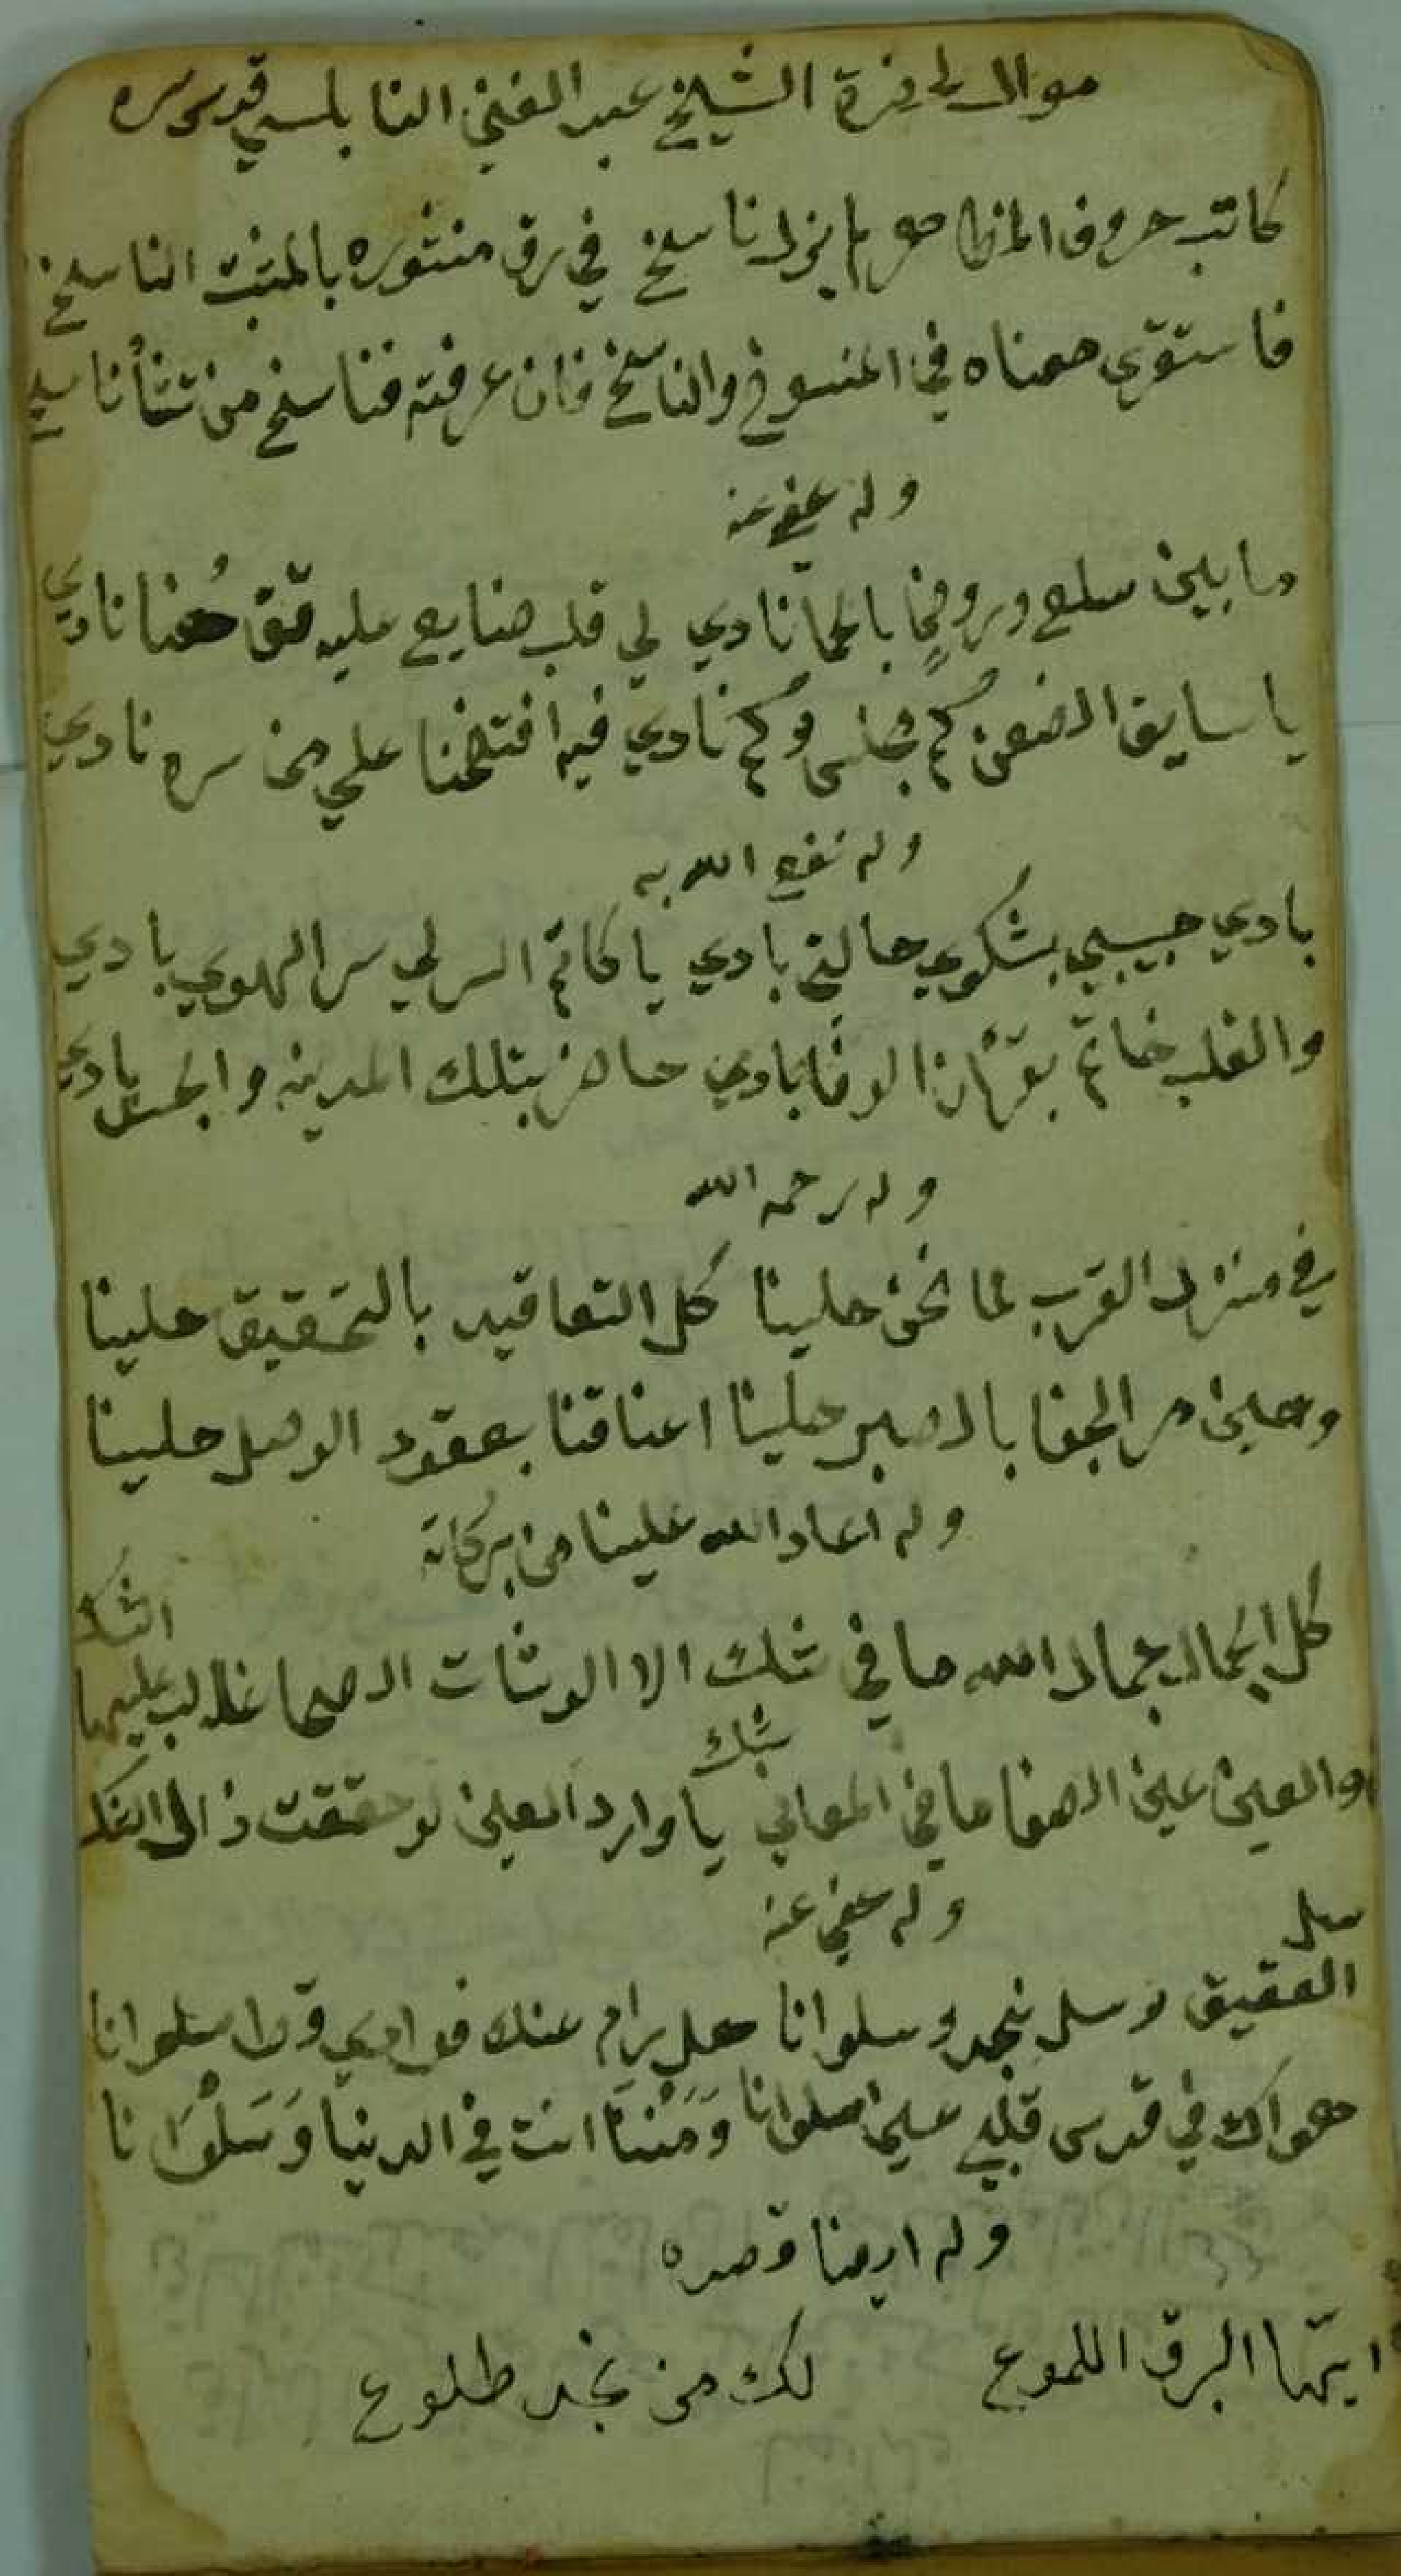 موال لحضرة الشيخ عبد الغني النابلسي قدس سره
كاتب حروف المظاهر لم يزل ناسخ في رق منشوره بالمثبت الناسخ
فاستوى معناه في المنسوخ والناسخ فان عرفته فناسخ من تشأ ناسخ
وله عفي عنه
ما بين سلع وروض بالحما نادي لي قلب ضايع عليه قق هنا نادي
يا سايق الضعن كم مجلس وكم نادي فيه افتضحنا على من سره نادي
وله نفع الله به
بادي حبيبي بشكوي حالتي بادي يا كاتم السر لي سر الهوي بادي
والقلب خاتم بقرآن الوفا بادي حاضر بتلك المدينه والجسد بادي
وله رحمه الله
في منزل القرب لما نحن حلينا كل التعاقيد بالتحقيق حلينا
وحين مر الجفا بالصبر حلينا اعناقنا بعقود الوصل حلينا
وله اعاد الله علينا من بركاته
كل الجمال جمال الله ما في شك الا الوشات العما غالب عليها الشك
والعين عين الصفا ما في المعاني شك يا وارد العين لو حققت ذال الشك
وله عفي عنه
سل العقيق وسل نجد وسلوانا هل رام عنك فوادي قط سلوانا
هواك في قدس قلبي عين سلوانا وَمَنَّنَا انت في الدنيا وَسَلْوَانا
وله ايضا قصده
ايّها البرق اللموع لك من نجد طلوع